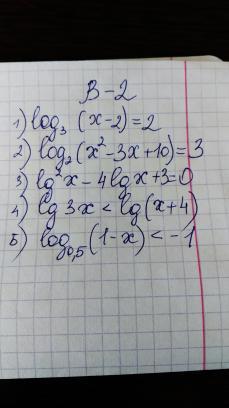 В-2
1) log₃ (x-2)=2
2) log₂(x²-3x+10)=3
3) lg²x-4lgx+3=0
4) lg3x<lg(x+4)
5) log₀,₅(1-x)<-1